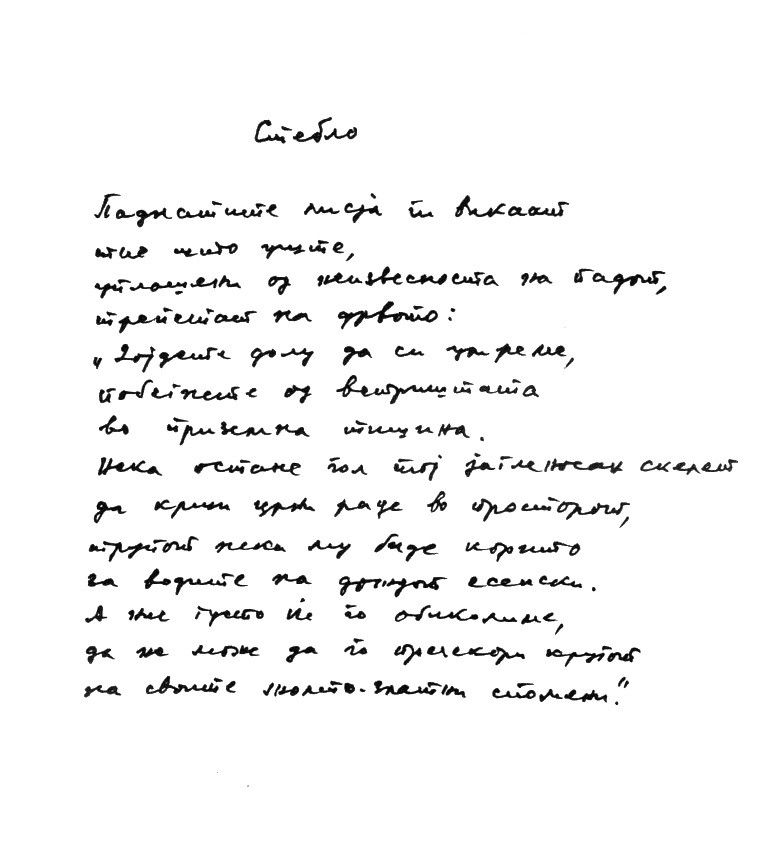 Стебло
Паднатите лисја ги викаат
тие што уште,
уплашени од неизвесноста на падот,
трепетат на дрвото:
„Дојдете долу да си умреме,
побегнете од ветриштата
во приземна тишина.
Нека остане гол тој јагленосан скелет
да крши црни раце во просторот,
трупот нека му биде корито
за водите на дождот есенски.
А ние густо ќе го обиколиме,
да не може да го пречекори кругот
на своите жолто-златни спомени."